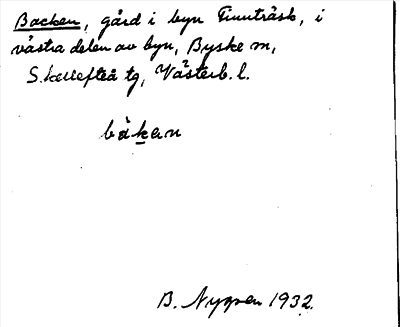 Backen, gård i byn Finnträsk, i
västra delen av byn, Byske sn,
Skellefteå tg, Västerb. l.
bàkan
B. Nygren 1932.